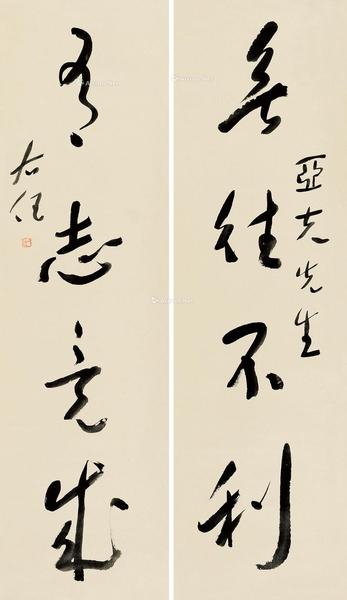 亞夫先生
無往不利
有志竟成
右任